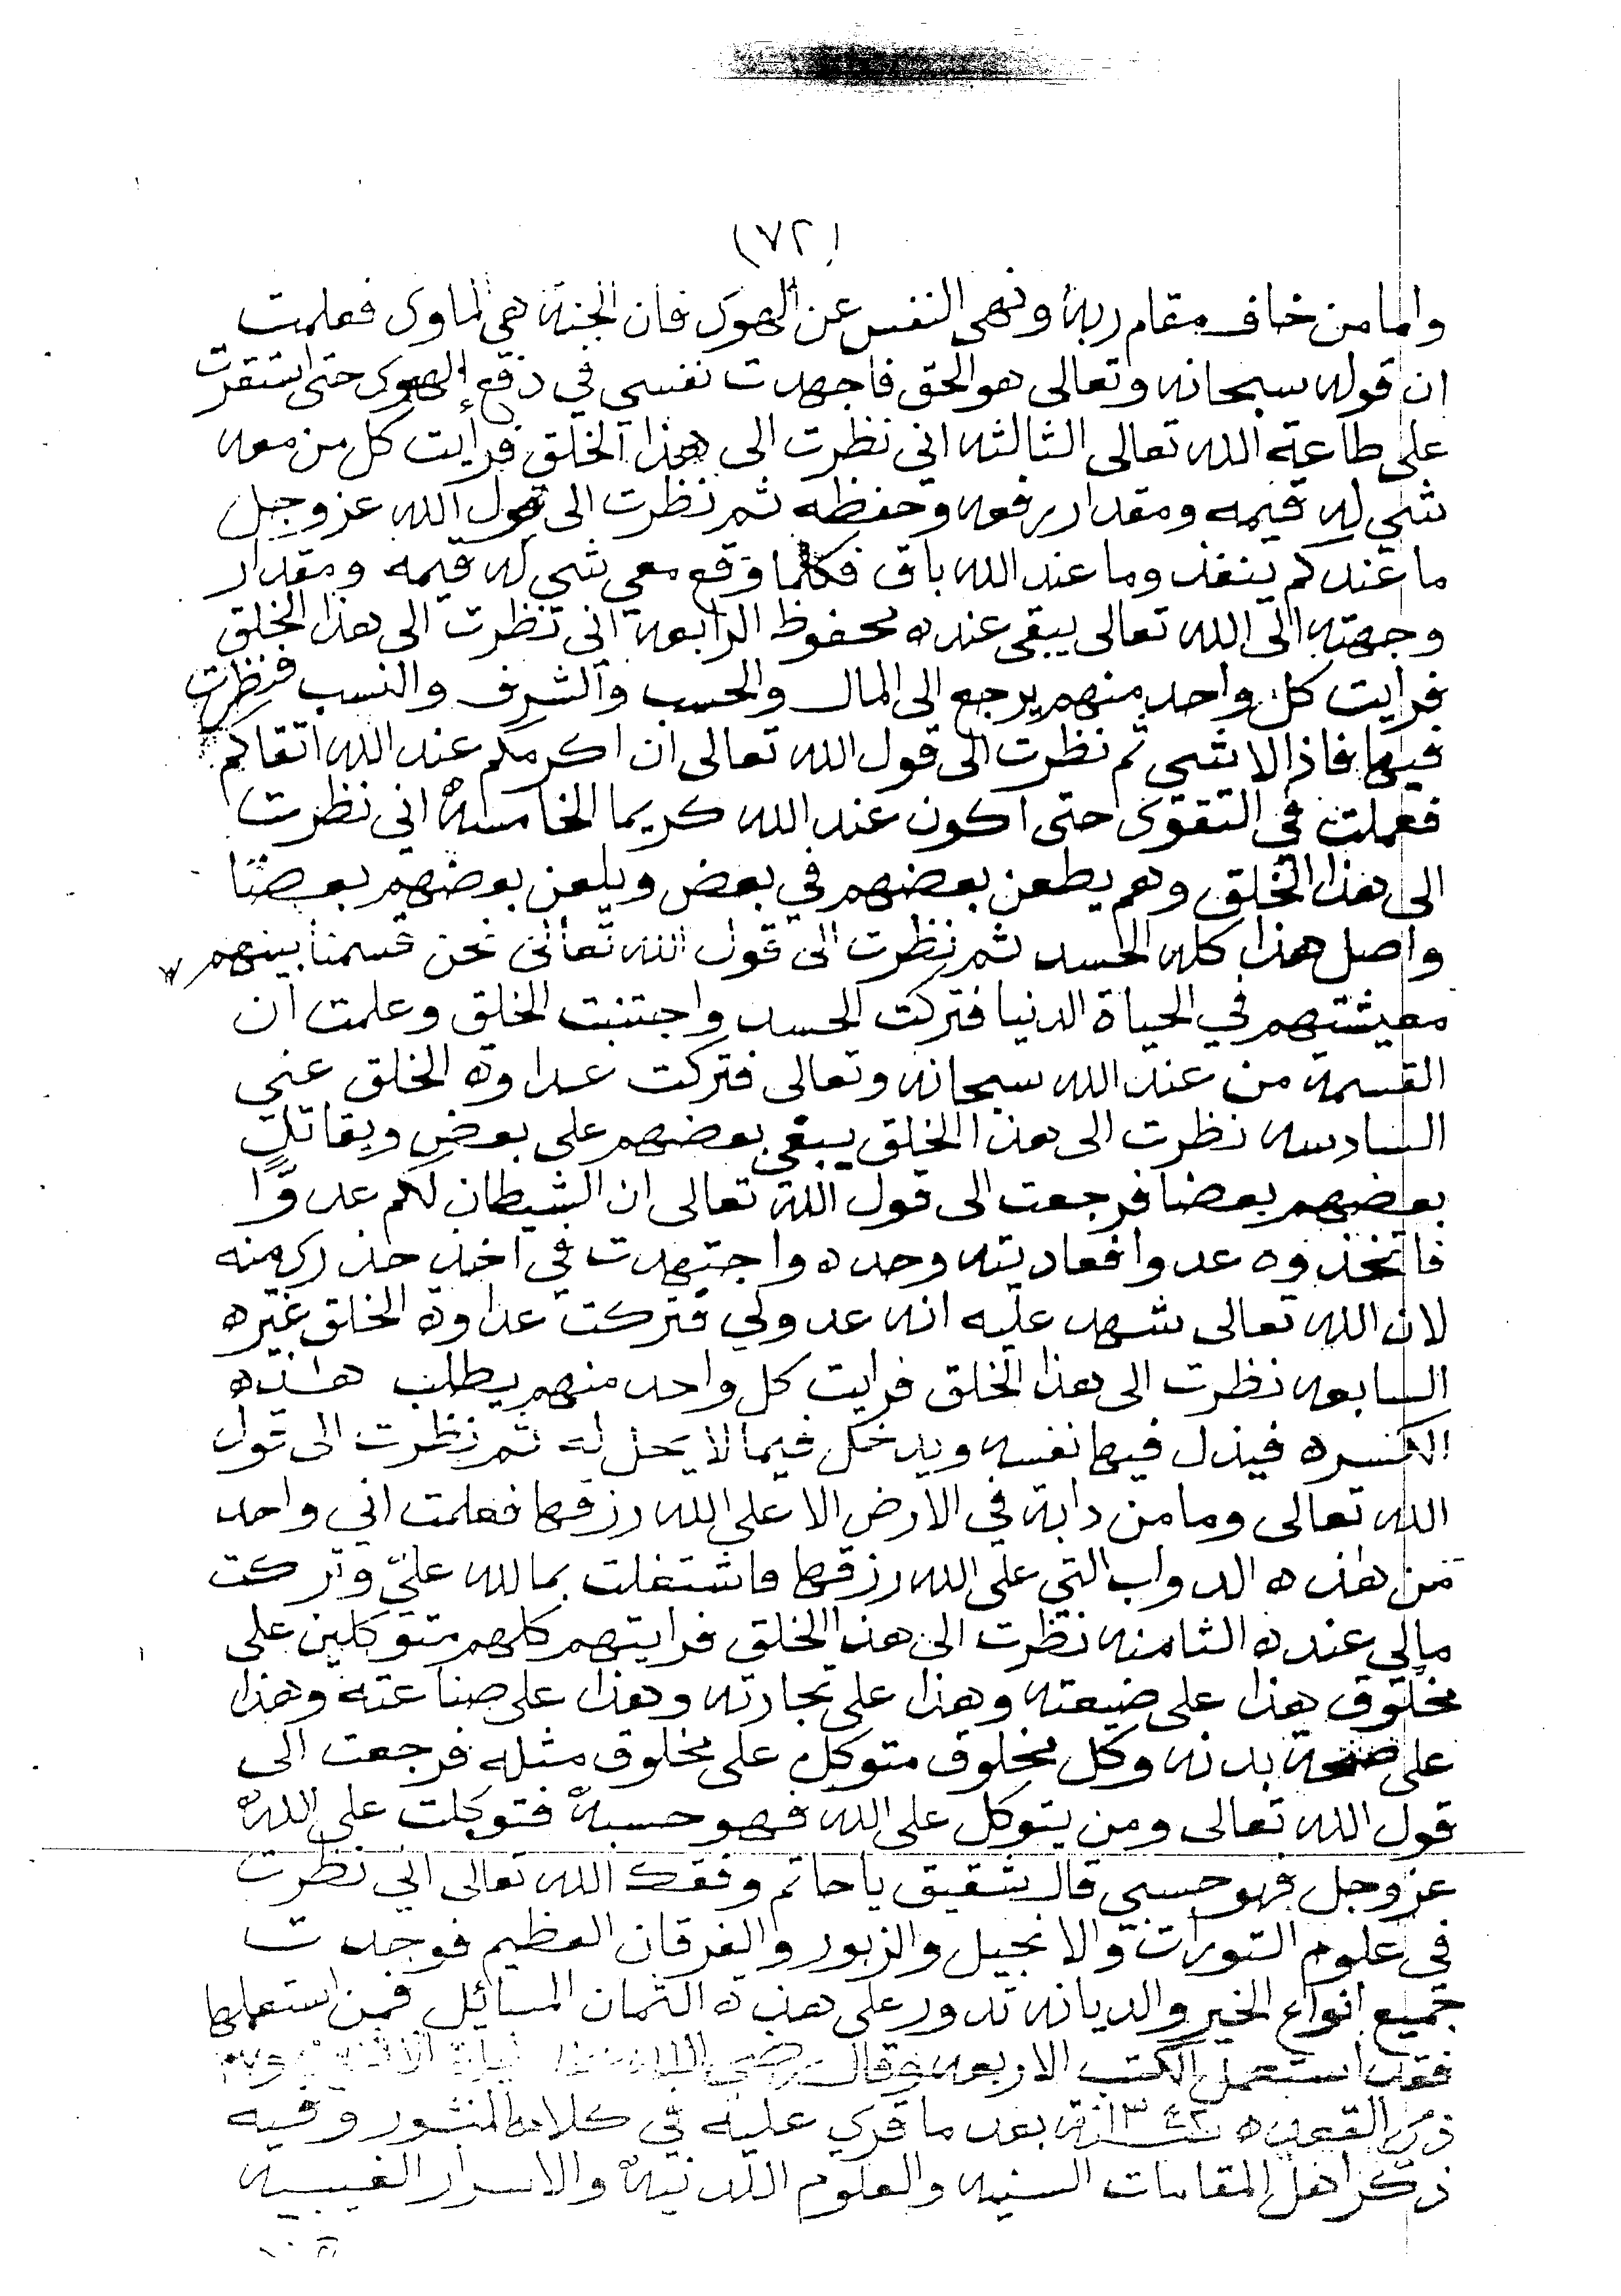 (٧٢)
واما من خاف مقام ربه ونهى النفس عن الهوى فان الجنة هي الماوى فعلمت
ان قوله سبحانه وتعالى هو الحق فاجهدت نفسي في دفع الهوى حتى استقرت
على طاعة الله تعالى الثالثه اني نظرت الى هذا الخلق فرايت كل من معه
شي له قيمه ومقدار رفعه وحفظه ثم نظرت الى قول الله عز وجل
ما عندكم ينفذ وما عند الله باق فكلما وقع معي شي له قيمه ومقدار
وجهته الى الله تعالى يبقى عنده محفوظ الرابعه اني نظرت الى هذا الخلق
فرايت كل واحد منهم يرجع الى المال والحسب والشرف والنسب فنظرت
فيها فاذا لا شي ثم نظرت الى قول الله تعالى ان اكرمكم عند الله اتقاكم
فعملت في التقوى حتى اكون عند الله كريما الخامسة اني نظرت
الى هذا الخلق وهم يطعن بعضهم في بعض ويلعن بعضهم بعضًا
واصل هذا كله الحسد ثم نظرت الى قول الله تعالى نحن قسمنا بينهم
معيشتهم في الحياة الدنيا فتركت الحسد واجتنبت الخلق وعلمت ان
القسمة من عند الله سبحانه وتعالى فتركت عداوة الخلق عني
السادسه نظرت الى هذا الخلق يبغي بعضهم على بعض ويقاتل
بعضهم بعضا فرجعت الى قول الله تعالى ان الشيطان لكم عدوًّا
فاتخذوه عدوا فعاديته وحده واجتهدت في اخذ حذري منه
لان الله تعالى شهد عليه انه عدو لي فتركت عداوة الخلق غيره
السابعه نظرت الى هذا الخلق فرايت كل واحد منهم يطلب هذه
الكسره فيذل فيها نفسه ويدخل فيما لا يحل له ثم نظرت الى قول
الله تعالى وما من دابة في الارض الا على الله رزقها فعلمت اني واحد
من هذه الدواب التي على الله رزقها فاشتغلت بما لله عليّ وتركت
مالي عنده الثامنه نظرت الى هذا الخلق فرايتهم كلهم متوكلين على
مخلوق هذا على ضيعته وهذا على تجارته وهذا على صناعته وهذا
على صحة بدنه وكل مخلوق متوكل على مخلوق مثله فرجعت الى
قول الله تعالى ومن يتوكل على الله فهو حسبه فتوكلت على الله
عز وجل فهو حسبي قال شقيق يا حاتم وفقك الله تعالى اني نظرت
في علوم التورات والانجيل والزبور والفرقان العظيم فوجدت
جميع انواع الخير والديانه تدور على هذه الثمان المسائل فمن استعملها
فقد استعمل الكتب الاربعه وقال رضي الله
القعده سنة ١٣٤٢ بعد ما قري عليه في كلامه المنثور وفيه
ذكر اهل المقامات السنيه والعلوم اللدنيه والاسرار الغيبيه